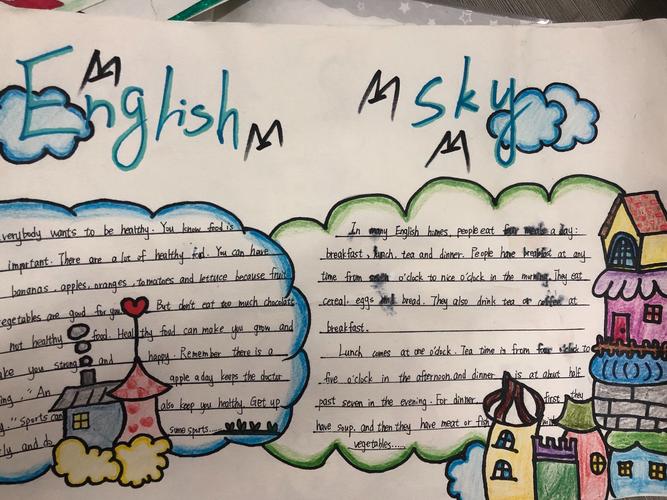 English
sky
everybody wants to be healthy. You know food is
important. There are a lot of healthy fod. You can have
bananas, apples, oranges, tomatoes and lettuce because fruit
vegetables are good for you. But don't eat too much chocolate
not healthy food. Healthy food can make you grow and
make you strong and happy. Remember there is a
"An apple a day keeps the doctor
" Sports can also keep you healthy. Get up
and do some sports......
In many English homes, people eat four meals a day:
breakfast, lunch, tea and dinner. People have breakfast at any
time from seven o'clock to nice o'clock in the morning. They eat
cereal, eggs and bread. They also drink tea or coffee at
breakfast.
Lunch comes at one o'clock. Tea time is from four o'clock to
five o'clock in the afternoon and dinner is at about half
past seven in the evening. For dinner first, they
have soup, and then they have meat or
vegetables......